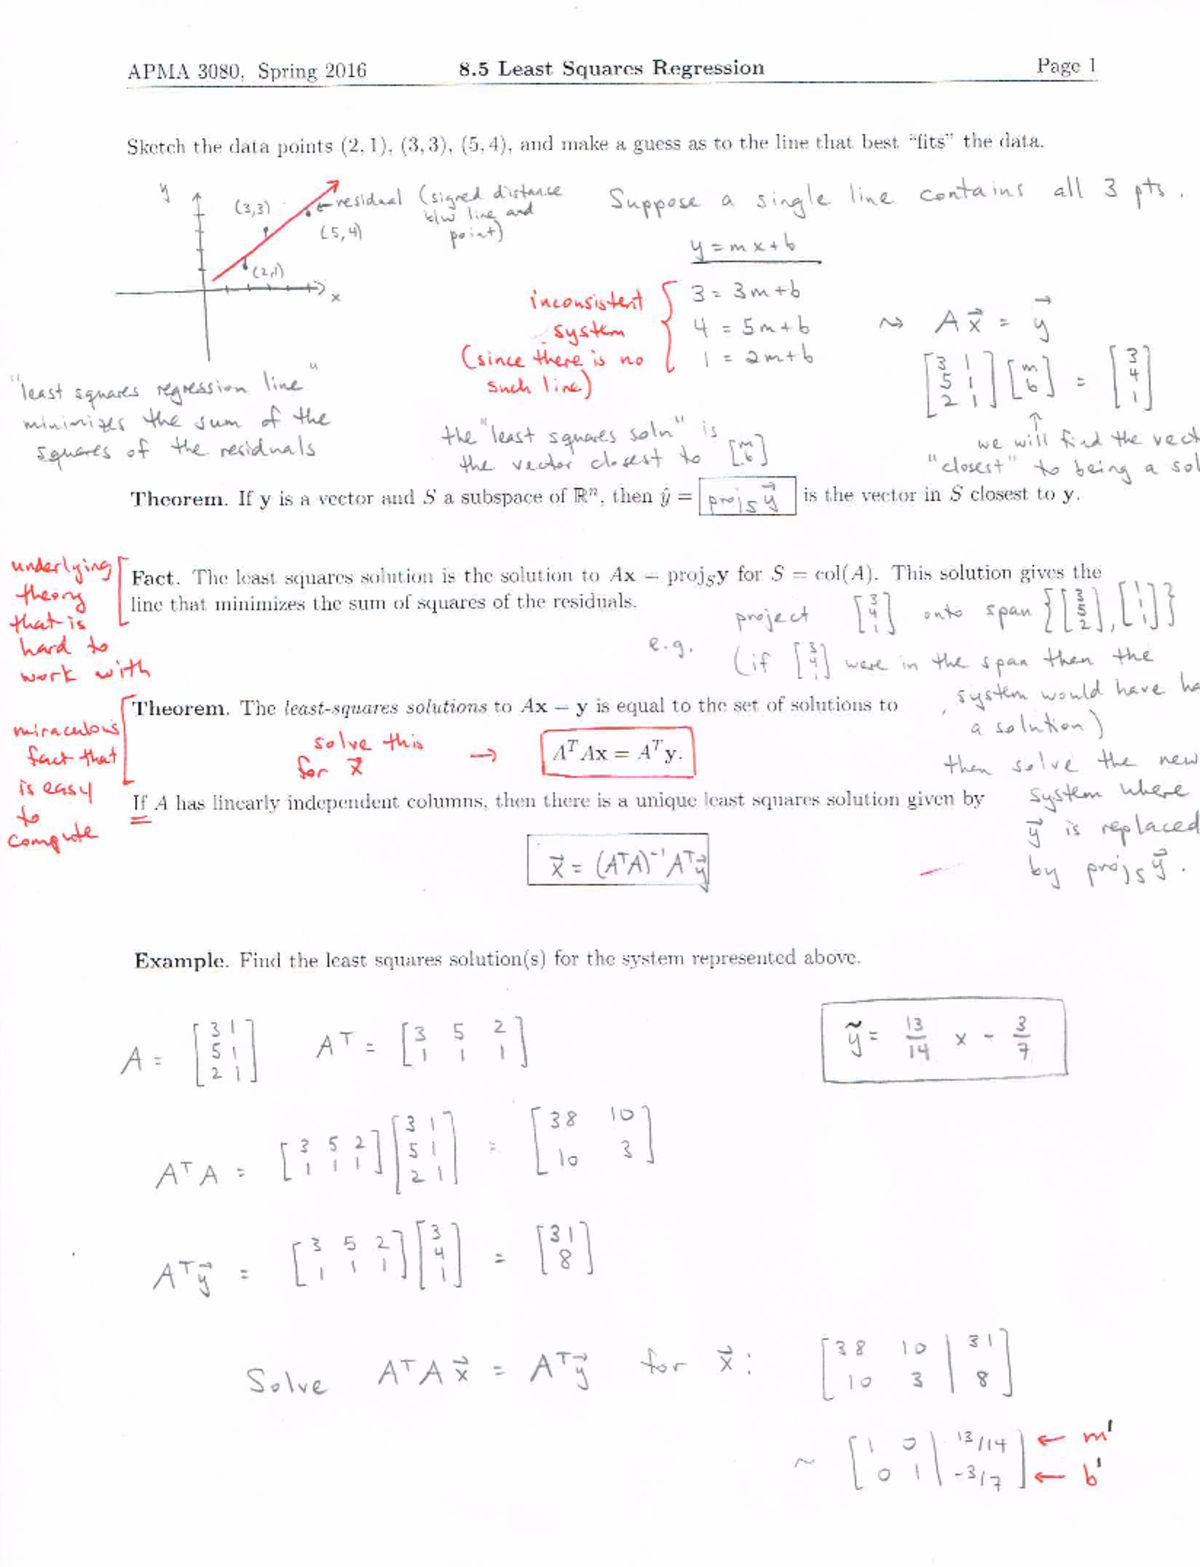 APMA 3080, Spring 2016 8.5 Least Squares Regression Page 1
Sketch the data points (2, 1), (3, 3), (5, 4), and make a guess as to the line that best "fits" the data.
y
(3,3)
← residual (signed distance
b/w line and
point)
(5,4)
(2,1)
x
Suppose a single line contains all 3 pts.
y = mx + b
inconsistent
system
(since there is no
such line)
3 = 3m + b
4 = 5m + b
1 = 2m + b
⇝ A x⃗ = y⃗
[3 1; 5 1; 2 1] [m; b] = [3; 4; 1]
↑
we will find the vect
"closest" to being a sol
"least squares regression line"
minimizes the sum of the
squares of the residuals
the "least squares soln" is
the vector closest to [m; b]
Theorem. If y is a vector and S a subspace of ℝⁿ, then ŷ = proj_S y⃗ is the vector in S closest to y.
underlying
theory
that is
hard to
work with
Fact. The least squares solution is the solution to Ax = proj_S y for S = col(A). This solution gives the
line that minimizes the sum of squares of the residuals.
e.g.
project [3; 4; 1] onto span {[3; 5; 2], [1; 1; 1]}
(if [3; 4; 1] were in the span then the
system would have ha
a solution)
then solve the new
system where
y⃗ is replaced
by proj_S y⃗.
miraculous
fact that
is easy
to
compute
Theorem. The least-squares solutions to Ax = y is equal to the set of solutions to
solve this
for x⃗
→ AᵀAx = Aᵀy.
If A has linearly independent columns, then there is a unique least squares solution given by
x⃗ = (AᵀA)⁻¹ Aᵀy⃗
Example. Find the least squares solution(s) for the system represented above.
A = [3 1; 5 1; 2 1] Aᵀ = [3 5 2; 1 1 1]
ỹ = 13/14 x - 3/7
AᵀA = [3 5 2; 1 1 1] [3 1; 5 1; 2 1] = [38 10; 10 3]
Aᵀy⃗ = [3 5 2; 1 1 1] [3; 4; 1] = [31; 8]
Solve AᵀA x⃗ = Aᵀy⃗ for x⃗: [38 10 | 31; 10 3 | 8]
~ [1 0 | 13/14; 0 1 | -3/7] ← m' ← b'